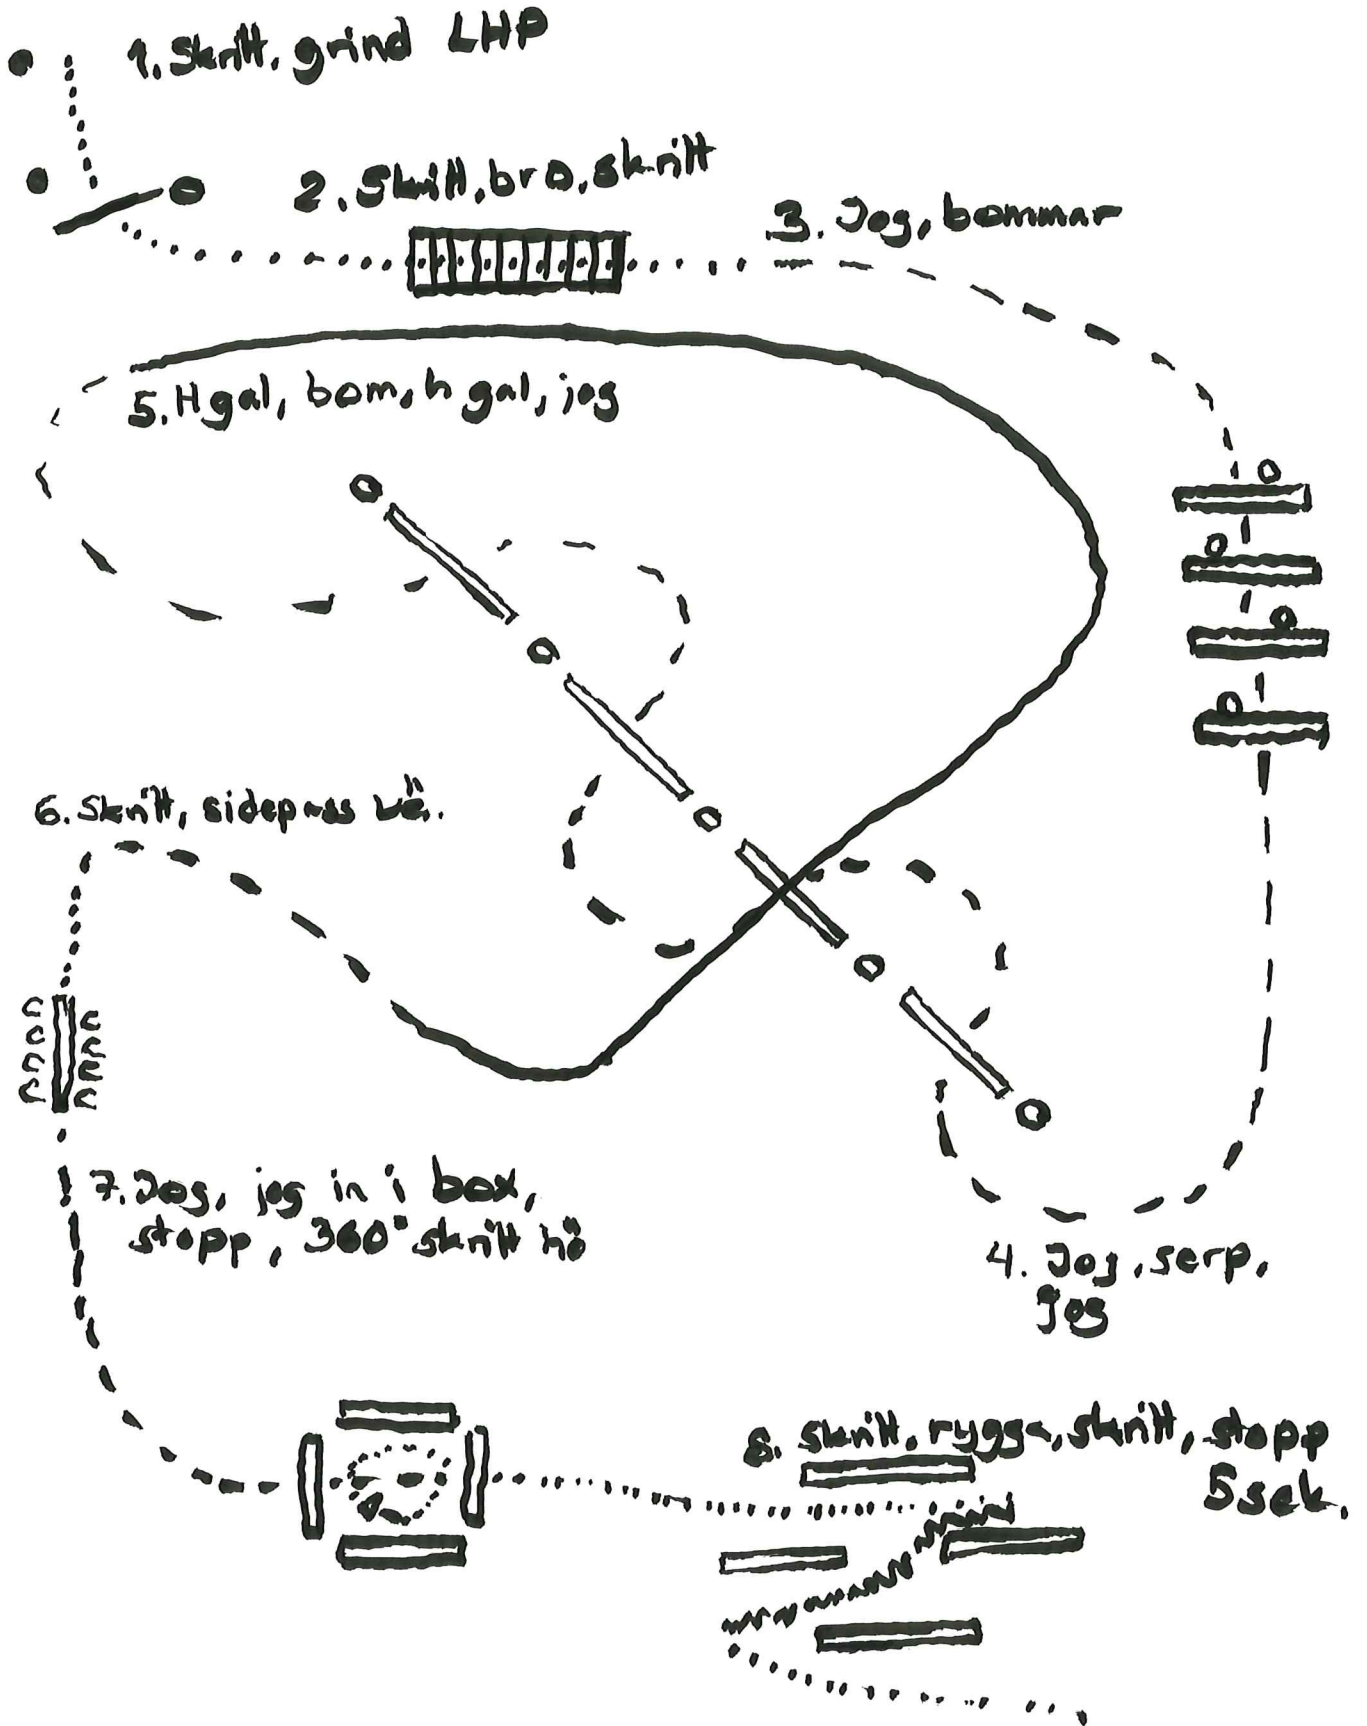 1. Skritt, grind LHP
2. Skritt, bro, skritt
3. Jog, bommar
5. H gal, bom, h gal, jog
6. Skritt, sidepass vä.
7. Jog, jog in i box,
stopp, 360° skritt hö
4. Jog, serp,
jog
8. skritt, rygga, skritt, stopp
5 sek.